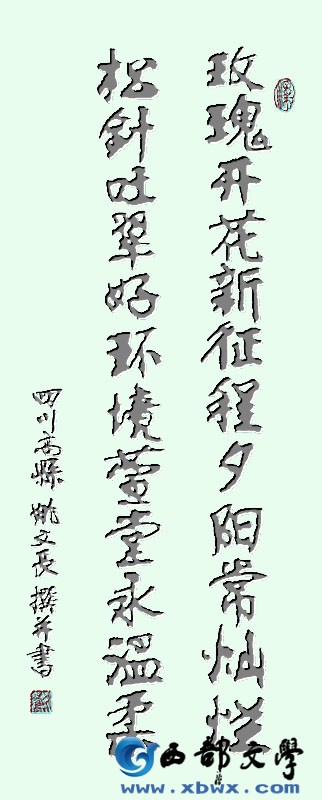 玫瑰开花新征程夕阳常灿烂
松針吐翠好环境萱堂永温柔
四川高縣姚文長撰并書
西部文学
www.xbwx.com